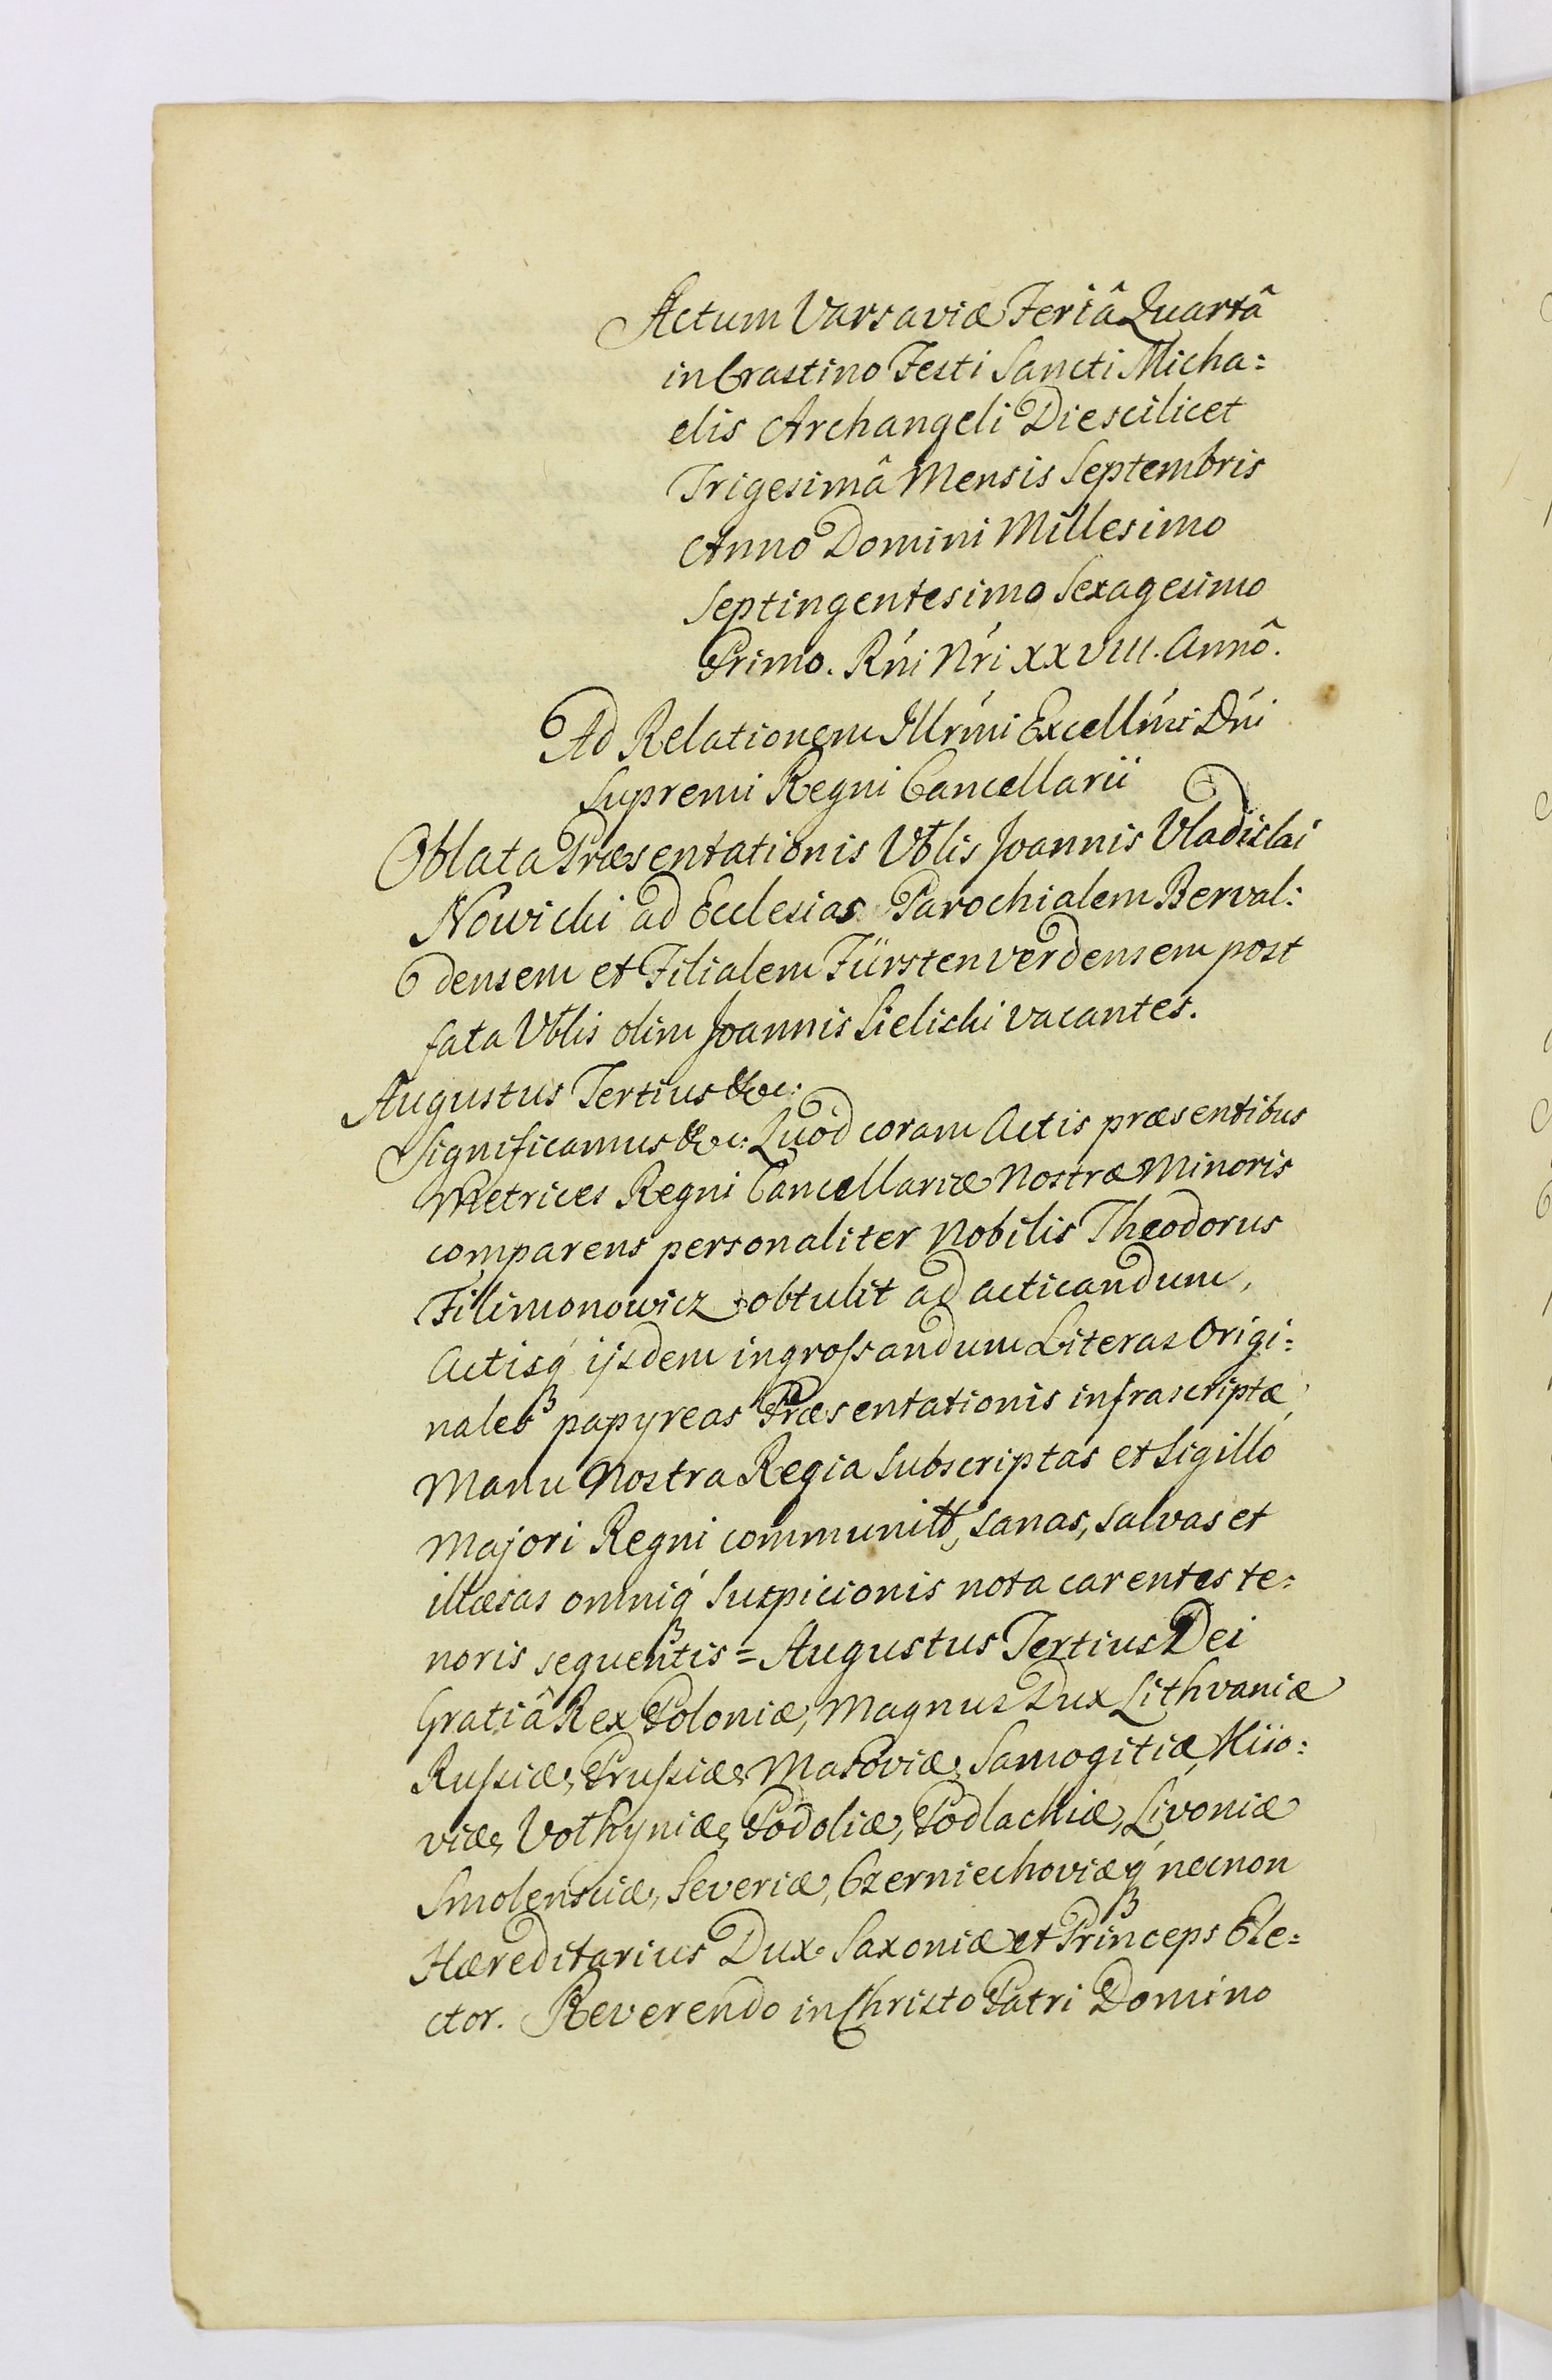 Actum Varsaviæ Feriâ Quartâ
in Crastino Festi Sancti Micha=
elis Archangeli Die scilicet
Trigesimâ Mensis Septembris
Anno Domini Millesimo
Septingentesimo Sexagesimo
Primo. Rńi Nŕi XXVIII. Annô.
Ad Relationem Illrḿi Excellḿi Dńi
Supremi Regni Cancellarii
Oblata Præsentationis Vblis Joannis Vladislai
Nowicki ad Ecclesias Parochialem Berval=
densem et Filialem Fürstenverdensem post
fata Vblis olim Joannis Sielicki vacantes.
Augustus Tertius &c:
Significamus &c: Quòd coram Actis præsentibus
Metrices Regni Cancellariæ Nostræ Minoris
comparens personaliter Nobilis Theodorus
Filimonowicz obtulit ad acticandum,
Actisq́ ijsdem ingrossandum Literas Origi=
nales papyreas Præsentationis infrascriptæ
Manu Nostra Regia Subscriptas et Sigillo
Majori Regni communitt, sanas, salvas et
illæsas omniq́ Suspicionis nota carentes te=
noris sequentis = Augustus Tertius Dei
Gratiâ Rex Poloniæ, Magnus Dux Lithvaniæ
Russiæ, Prussiæ, Masoviæ, Samogitiæ, Kiio=
viæ, Volhyniæ, Podoliæ, Podlachiæ, Livoniæ
Smolensciæ, Severiæ, Czerniechoviæq́ necnon
Hæreditarius Dux Saxoniæ et Princeps Ele=
ctor. Reverendo in Christo Patri Domino